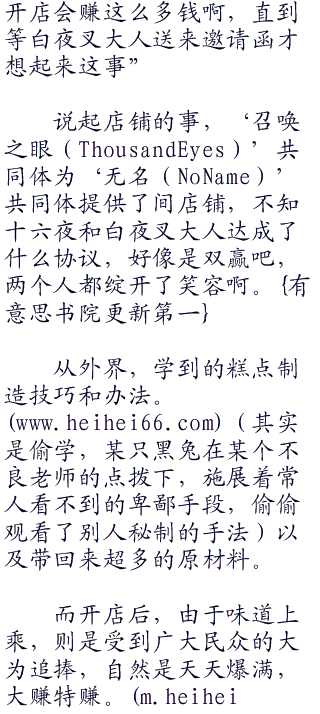 开店会赚这么多钱啊，直到
等白夜叉大人送来邀请函才
想起来这事”
说起店铺的事，‘召唤
之眼（ThousandEyes）’共
同体为‘无名（NoName）’
共同体提供了间店铺，不知
十六夜和白夜叉大人达成了
什么协议，好像是双赢吧，
两个人都绽开了笑容啊。{有
意思书院更新第一}
从外界，学到的糕点制
造技巧和办法。
(www.heihei66.com)（其实
是偷学，某只黑兔在某个不
良老师的点拨下，施展着常
人看不到的卑鄙手段，偷偷
观看了别人秘制的手法）以
及带回来超多的原材料。
而开店后，由于味道上
乘，则是受到广大民众的大
为追捧，自然是天天爆满，
大赚特赚。(m.heihei